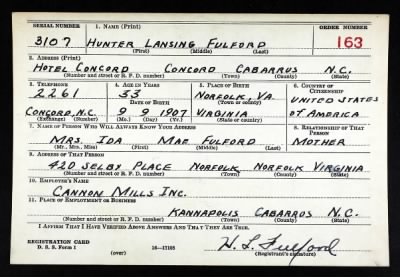 SERIAL NUMBER 1. NAME (Print) ORDER NUMBER
3107 HUNTER LANSING FULFORD 163
(First) (Middle) (Last)
2. ADDRESS (Print)
HOTEL CONCORD CONCORD CABARRUS N.C.
(Number and street or R. F. D. number) (Town) (County) (State)
3. TELEPHONE 4. AGE IN YEARS 5. PLACE OF BIRTH 6. COUNTRY OF CITIZENSHIP
2261 33 NORFOLK, VA. UNITED STATES
DATE OF BIRTH (Town or county)
CONCORD, N.C. 9 9 1907 VIRGINIA OF AMERICA
(Exchange) (Number) (Mo.) (Day) (Yr.) (State or country)
7. NAME OF PERSON WHO WILL ALWAYS KNOW YOUR ADDRESS 8. RELATIONSHIP OF THAT PERSON
MRS. IDA MAE FULFORD MOTHER
(Mr., Mrs., Miss) (First) (Middle) (Last)
9. ADDRESS OF THAT PERSON
420 SELBY PLACE NORFOLK NORFOLK VIRGINIA
(Number and street or R. F. D. number) (Town) (County) (State)
10. EMPLOYER'S NAME
CANNON MILLS INC.
11. PLACE OF EMPLOYMENT OR BUSINESS
KANNAPOLIS CABARROS N.C.
(Number and street or R. F. D. number) (Town) (County) (State)
I AFFIRM THAT I HAVE VERIFIED ABOVE ANSWERS AND THAT THEY ARE TRUE.
REGISTRATION CARD H. L. Fulford
D. S. S. Form 1 (over) 16—17105 (Registrant's signature)